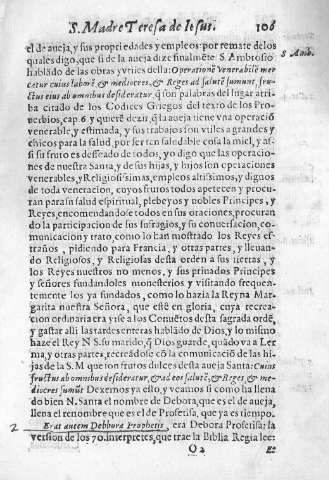 S. Madre Teresa de Iesus. 108
el de aueja, y sus propriedades y empleos: por remate de los
quales digo, que si de la aueja dize finalmẽte S. Ambrosio
S Amb.
hablãdo de las obras y vtiles della: Operationẽ venerabilẽ mer
catur cuius laborẽ & mediocres, & Reges ad salutẽ sumunt, fru-
ctus eius ab omnibus desideratur, q̃ son palabras del lugar arri-
ba citado de los Codices Griegos del texto de los Pro-
uerbios, cap. 6 y quere dezir, q̃ la aueja tiene vna operaciõ
venerable, y estimada, y sus trabajos son vtiles a grandes y
chicos para la salud, por ser tan saludable cosa la miel, y as-
si su fruto es desseado de todos, yo digo que las operacio-
nes de nuestra Santa, y de sus hijas, y hijos son operaciones
venerables, y Religiosissimas, empleos altissimos, y dignos
de toda veneracion, cuyos frutos todos apetecen y procu-
ran para su salud espiritual, plebeyos y nobles Principes, y
Reyes, encomendandose todos en sus oraciones, procuran
do la participacion de sus sufragios, y su conuersacion, co-
municacion y trato, como lo han mostrado los Reyes es-
traños, pidiendo para Francia, y otras partes, y lleuan-
do Religiosos, y Religiosas desta orden a sus tierras, y
los Reyes nuestros no menos, y sus priuados Principes
y señores fundandoles monesterios y visitando frequen-
temente los ya fundados, como lo hazia la Reyna Mar-
garita nuestra Señora, que estè en gloria, cuya recrea-
cion ordinaria era yrse a los Conuẽtos desta sagrada ordẽ,
y gastar alli las tardes enteras hablãdo de Dios, y lo mismo
haze el Rey N S. su marido, q̃ Dios guarde, quãdo va a Ler
ma, y otras partes, recreãdose cõ la comunicaciõ de las hi-
jas de la S. M que son frutos dulces desta aueja Santa: Cuius
fructus ab omnibus desideratur, & ad eor salutẽ, & Reges, & me-
diocres sumũt Dexemos ya esto, y veamos si como ha llena
do bien N. Santa el nombre de Debora, que es el de aueja,
llena el renombre que es el de Profetisa, que ya es tiempo.
2 Erat autem Debbora Prophetis, era Debora Profetisa: la
version de los 70. interpretes, que trae la Biblia Regia lee:
O 2 Et